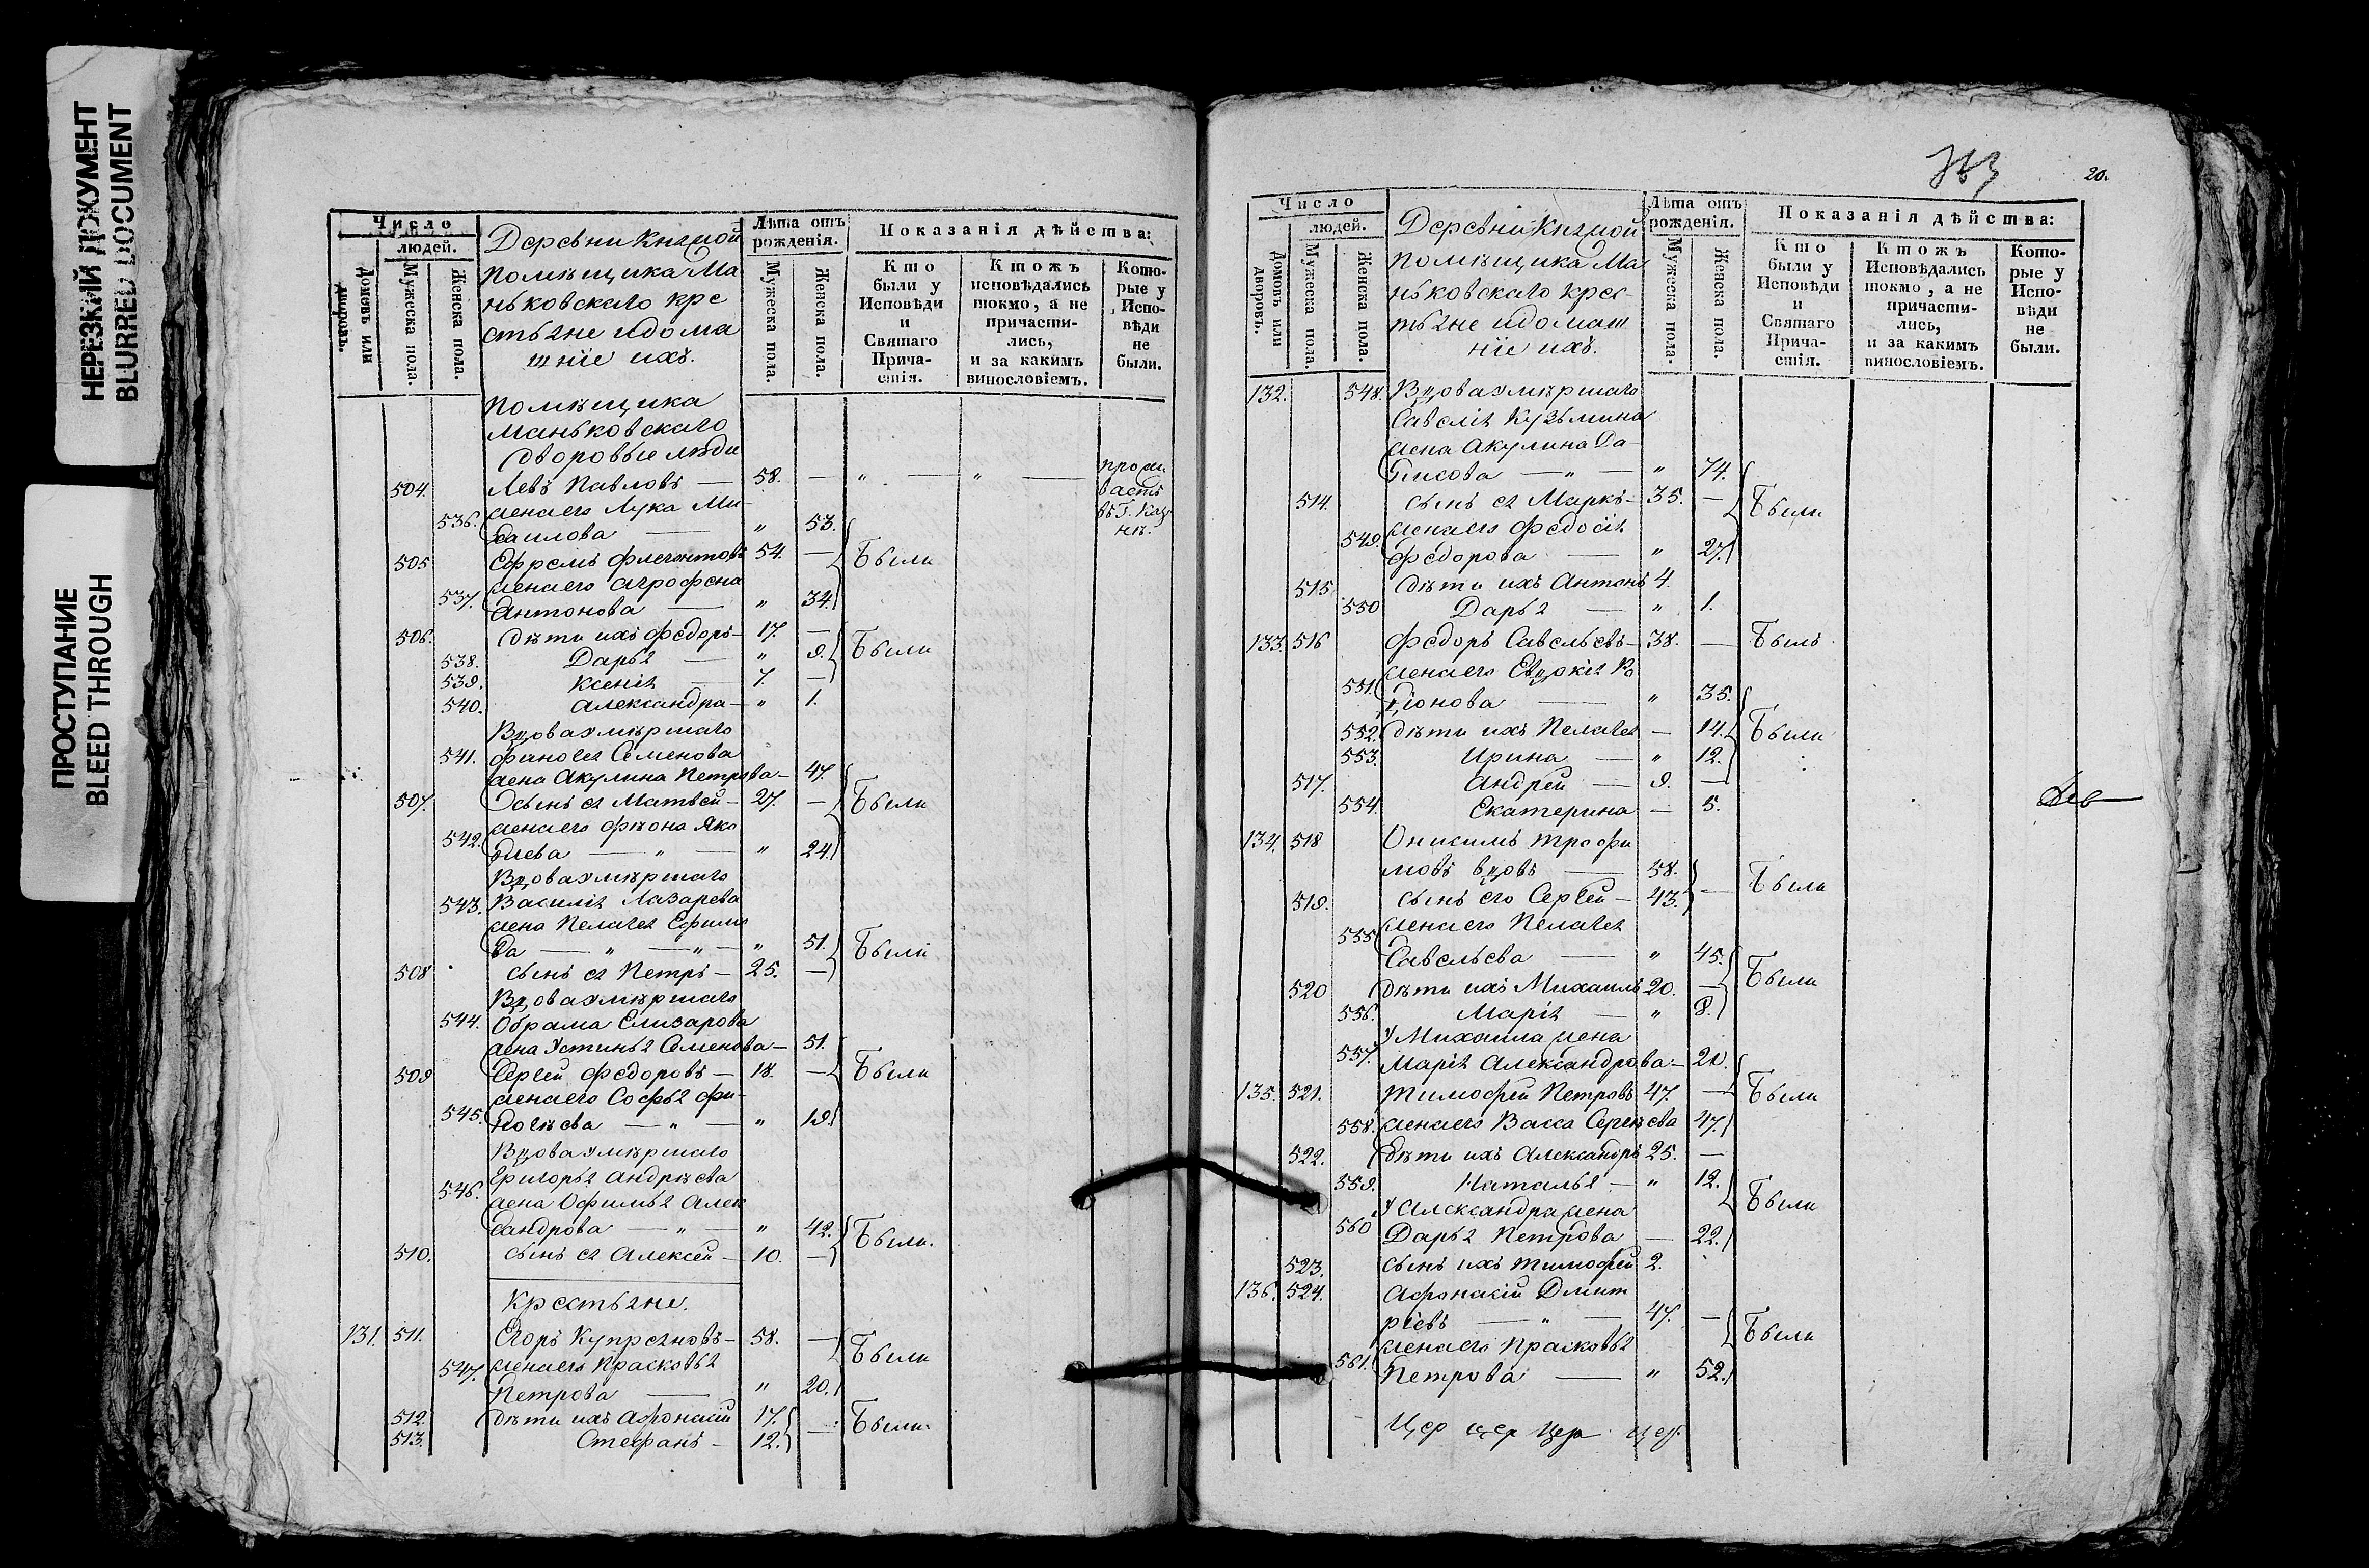 НЕРЕЗКИЙ ДОКУМЕНТ
BLURRED DOCUMENT
ПРОСТУПАНИЕ
BLEED THROUGH
Число
людей.
Домовъ или дворовъ.
Мужеска пола.
Женска пола.
Деревни Княжой
помѣщика Ма
ньковскаго кре
стьяне идома
шніе ихъ.
Лѣта отъ рожденія.
Мужеска пола.
Женска пола.
Показанія дѣйства:
Кто были у Исповѣди и Святаго Прича- стія.
Ктожъ исповѣдались токмо, а не причасти- лись, и за какимъ винословіемъ.
Кото- рые у Испо- вѣди не были.
помѣщика
Маньковскаго
дворовые люди
504. Левъ Павловъ — 58. — „ — „ —
536. женаего Лука Ми-
хаилова — „ 53.
въ Г. Каз
нѣ.
505 Ефремъ Флегонтовъ 54. — Были
537. женаего Агрофена
Антонова — „ 34.
506. дѣти ихъ Федоръ — 17. —
538. Дарья — „ 9. Были
539. Ксенія — 7. —
540. Александра — „ 1.
Вдоваумѣршаго
541. Семенова
жена Акулина Петрова — 47.
507. сынъ ея Матвей — 27. — Были
542. женаего Яко
влева — „ — „ 24.
Вдоваумѣршаго
543. Василія Лазарева
жена Пелагея Ефимо
ва — „ — „ — „ 51. Были
508 сынъ ея Петръ — 25. —
Вдоваумѣршаго
544. Обрама Елизарова
жена Устинья Семенова — 51.
509 Сергей Федоровъ — 18. — Были
545. женаего Софья
— „ — „ 19.
Вдоваумѣршаго
546. Григорья Андрѣева
жена Офимья Алек
сандрова — „ — „ 42. Были.
510. сынъ ея Алексей — 10. —
Крестьяне.
131. 511. Егоръ Купреяновъ — 58. — Были
547. женаего Прасковья
Петрова — „ 20.
512. дѣти ихъ Афонасій 17. — Были
513. Стефанъ — 12.
20.
Число
людей.
Домовъ или дворовъ.
Мужеска пола.
Женска пола.
Деревни Княжой
помѣщика Ма
ньковскаго крес-
тьяне идомаш
ніе ихъ.
Лѣта отъ рожденія.
Мужеска пола.
Женска пола.
Показанія дѣйства:
Кто были у Исповѣди и Святаго Прича- стія.
Ктожъ Исповѣдались токмо, а не причасти- лись, и за какимъ винословіемъ.
Кото- рые у Испо- вѣди не были.
132. 548. Вдоваумѣршаго
Савелія Кузьмина
жена Акулина
— „ — „ 74.
514. сынъ ея Маркъ — 35. — Были
549. женаего Федосія
Федорова — „ 27.
515 дѣти ихъ Антонъ 4.
550 Дарья — „ 1.
133. 516 Федоръ Савельевъ — 38. — Былъ
551. женаего Евдокія Ро
діонова — „ 35.
552. дѣти ихъ Пелагея — 14. Были
553. Ирина — „ 12.
517. Андрей — 9. —
554. Екатерина — 5.
134. 518 Онисимъ Трофи
мовъ вдовъ — 58. — Были
519. сынъ его Сергей — 43.
555 женаего Пелагея
Савельева — „ 45.
520 дѣти ихъ Михаилъ 20. — Были
556. Марія — „ 8.
557. у Михаила жена
Марія Александрова — 20.
135. 521. Тимофей Петровъ 47. — Были
558. женаего Васса Сергѣева 47.
522. дѣти ихъ Александръ 25. —
559. Наталья — „ 12. Были
у Александра жена
560 Дарья Петрова — 22.
523. сынъ ихъ Тимофей 2.
136. 524. Афонасій Дмит
ріевъ — „ — 47. — Были
561. женаего Прасковья
Петрова — „ 52.